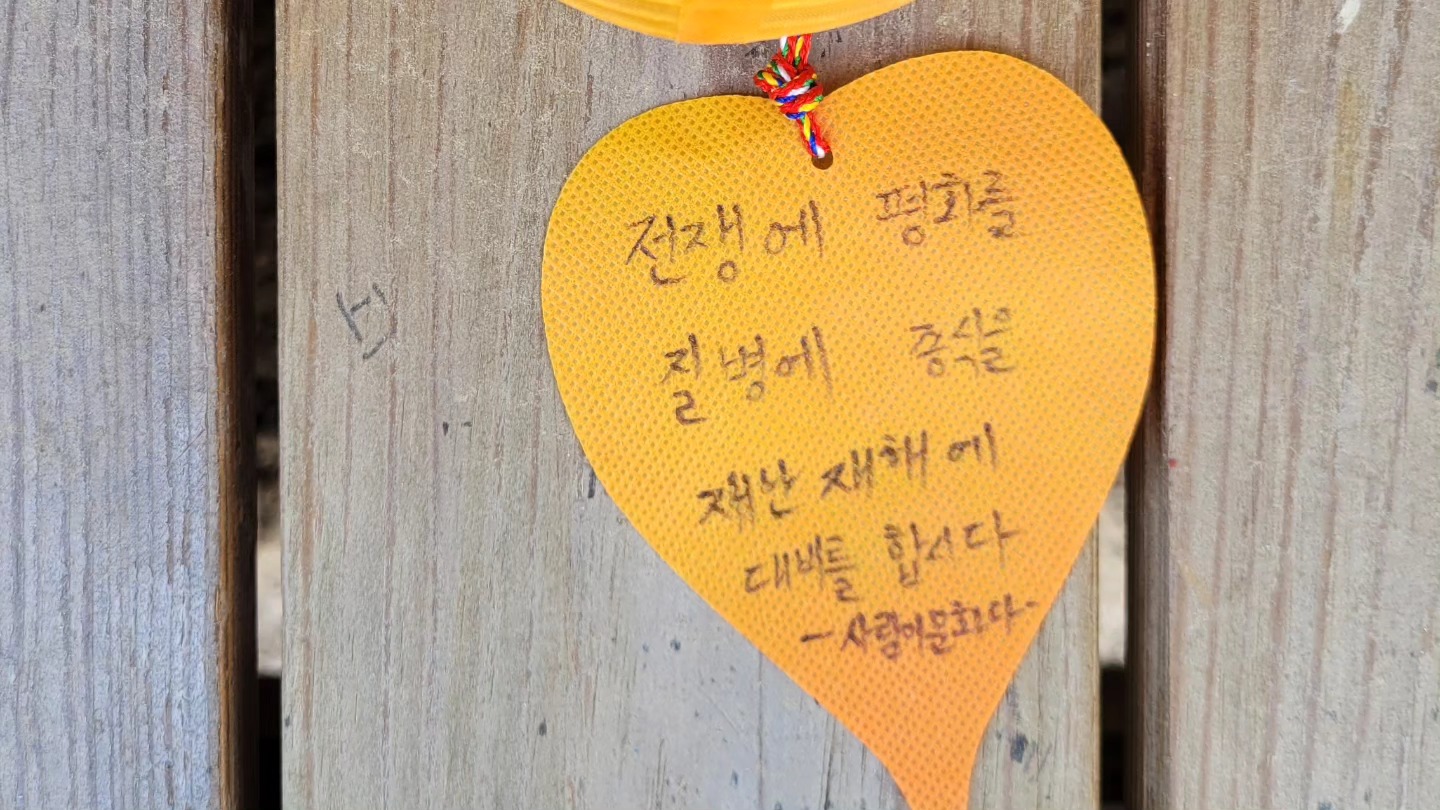 전쟁에 평화를
질병에 종식을
재난 재해에
대비를 합시다
-사람이 문화다-